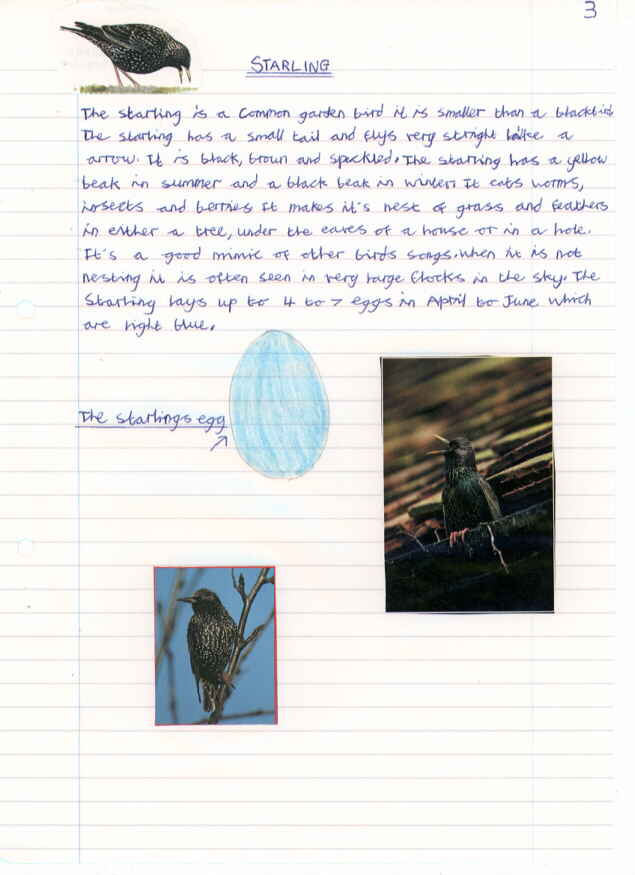 3
STARLING
The starling is a Common garden bird it is smaller than a blackbird.
The starling has a small tail and flys very stright like a
arrow. It is black, brown and speckled. The starling has a yellow
beak in summer and a black beak in winter. It eats worms,
insects and berries It makes it's nest of grass and feathers
in either a tree, under the eaves of a house or in a hole.
It's a good mimic of other birds songs. when it is not
nesting it is often seen in very large flocks in the sky. The
Starling lays up to 4 to 7 eggs in April to June which
are light blue.
The starlings egg